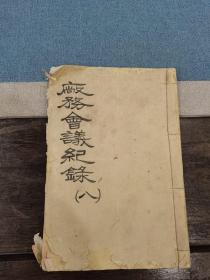 廠務會議紀錄(八)